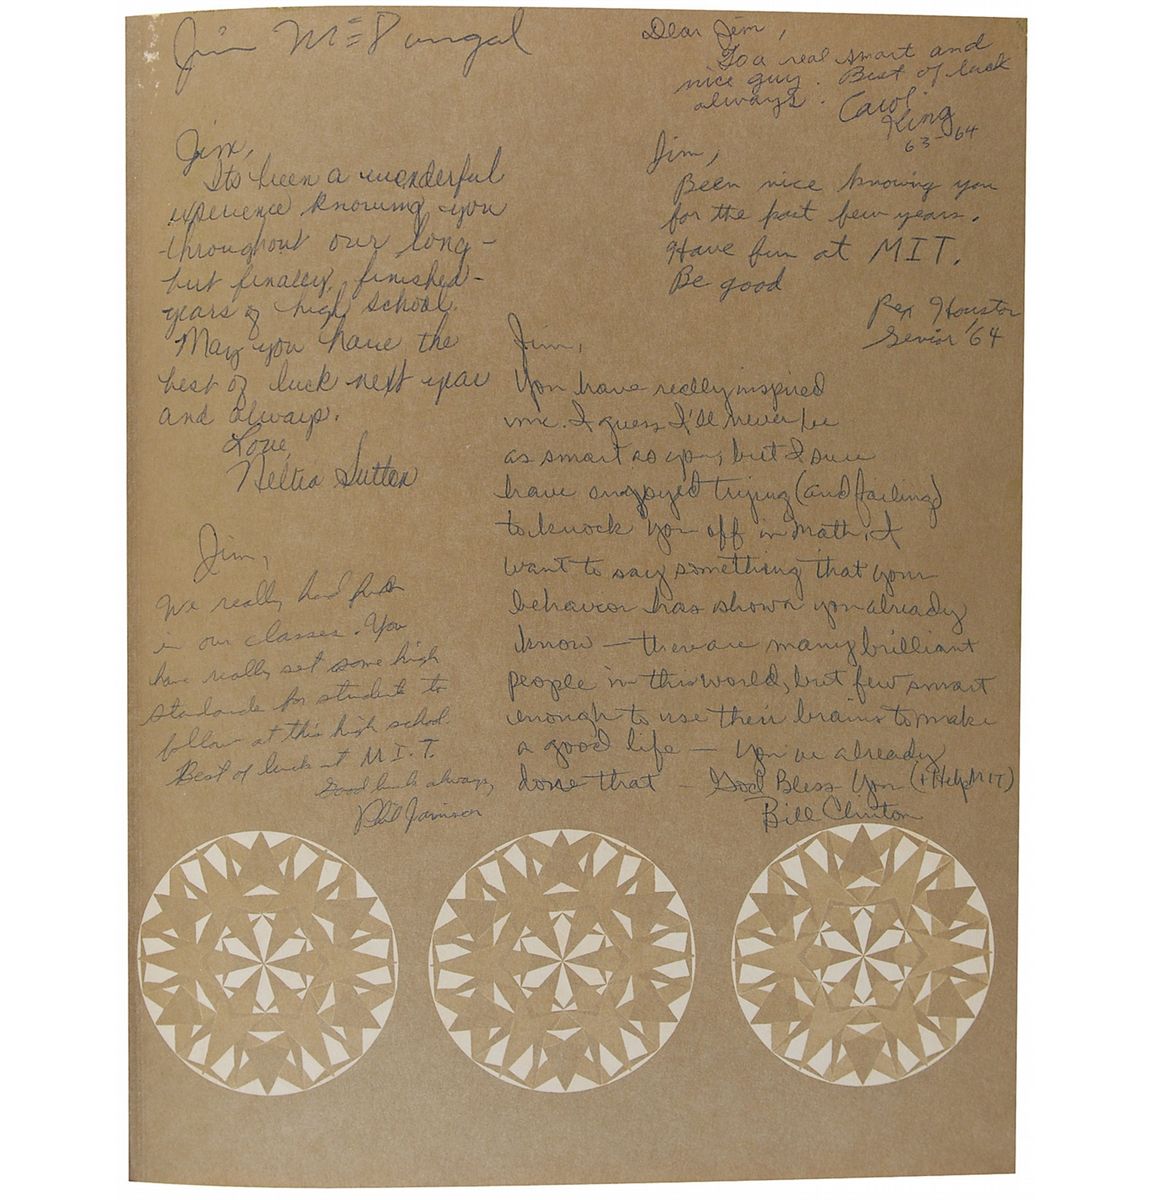 Jim McDougal
Dear Jim,
To a real smart and
nice guy. Best of luck
always. Carol
King
63-64
Jim,
Its been a wonderful
experience knowing you
throughout our long -
but finally, finished -
years of high school.
May you have the
best of luck next year
and always.
Love,
Neltia Sutton
Jim,
Been nice knowing you
for the past few years.
Have fun at MIT.
Be good
Rex Houston
Senior '64
Jim,
We really had fun
in our classes. You
have really set some high
standards for students to
follow at this high school.
Best of luck at M.I.T.
Good luck always,
Phil Jamison
Jim,
You have really inspired
me. I guess I'll never be
as smart as you, but I sure
have enjoyed trying (and failing)
to knock you off in Math. I
want to say something that your
behavior has shown you already
know — there are many brilliant
people in this world, but few smart
enough to use their brains to make
a good life — You've already
done that — God Bless You (& Help MIT)
Bill Clinton